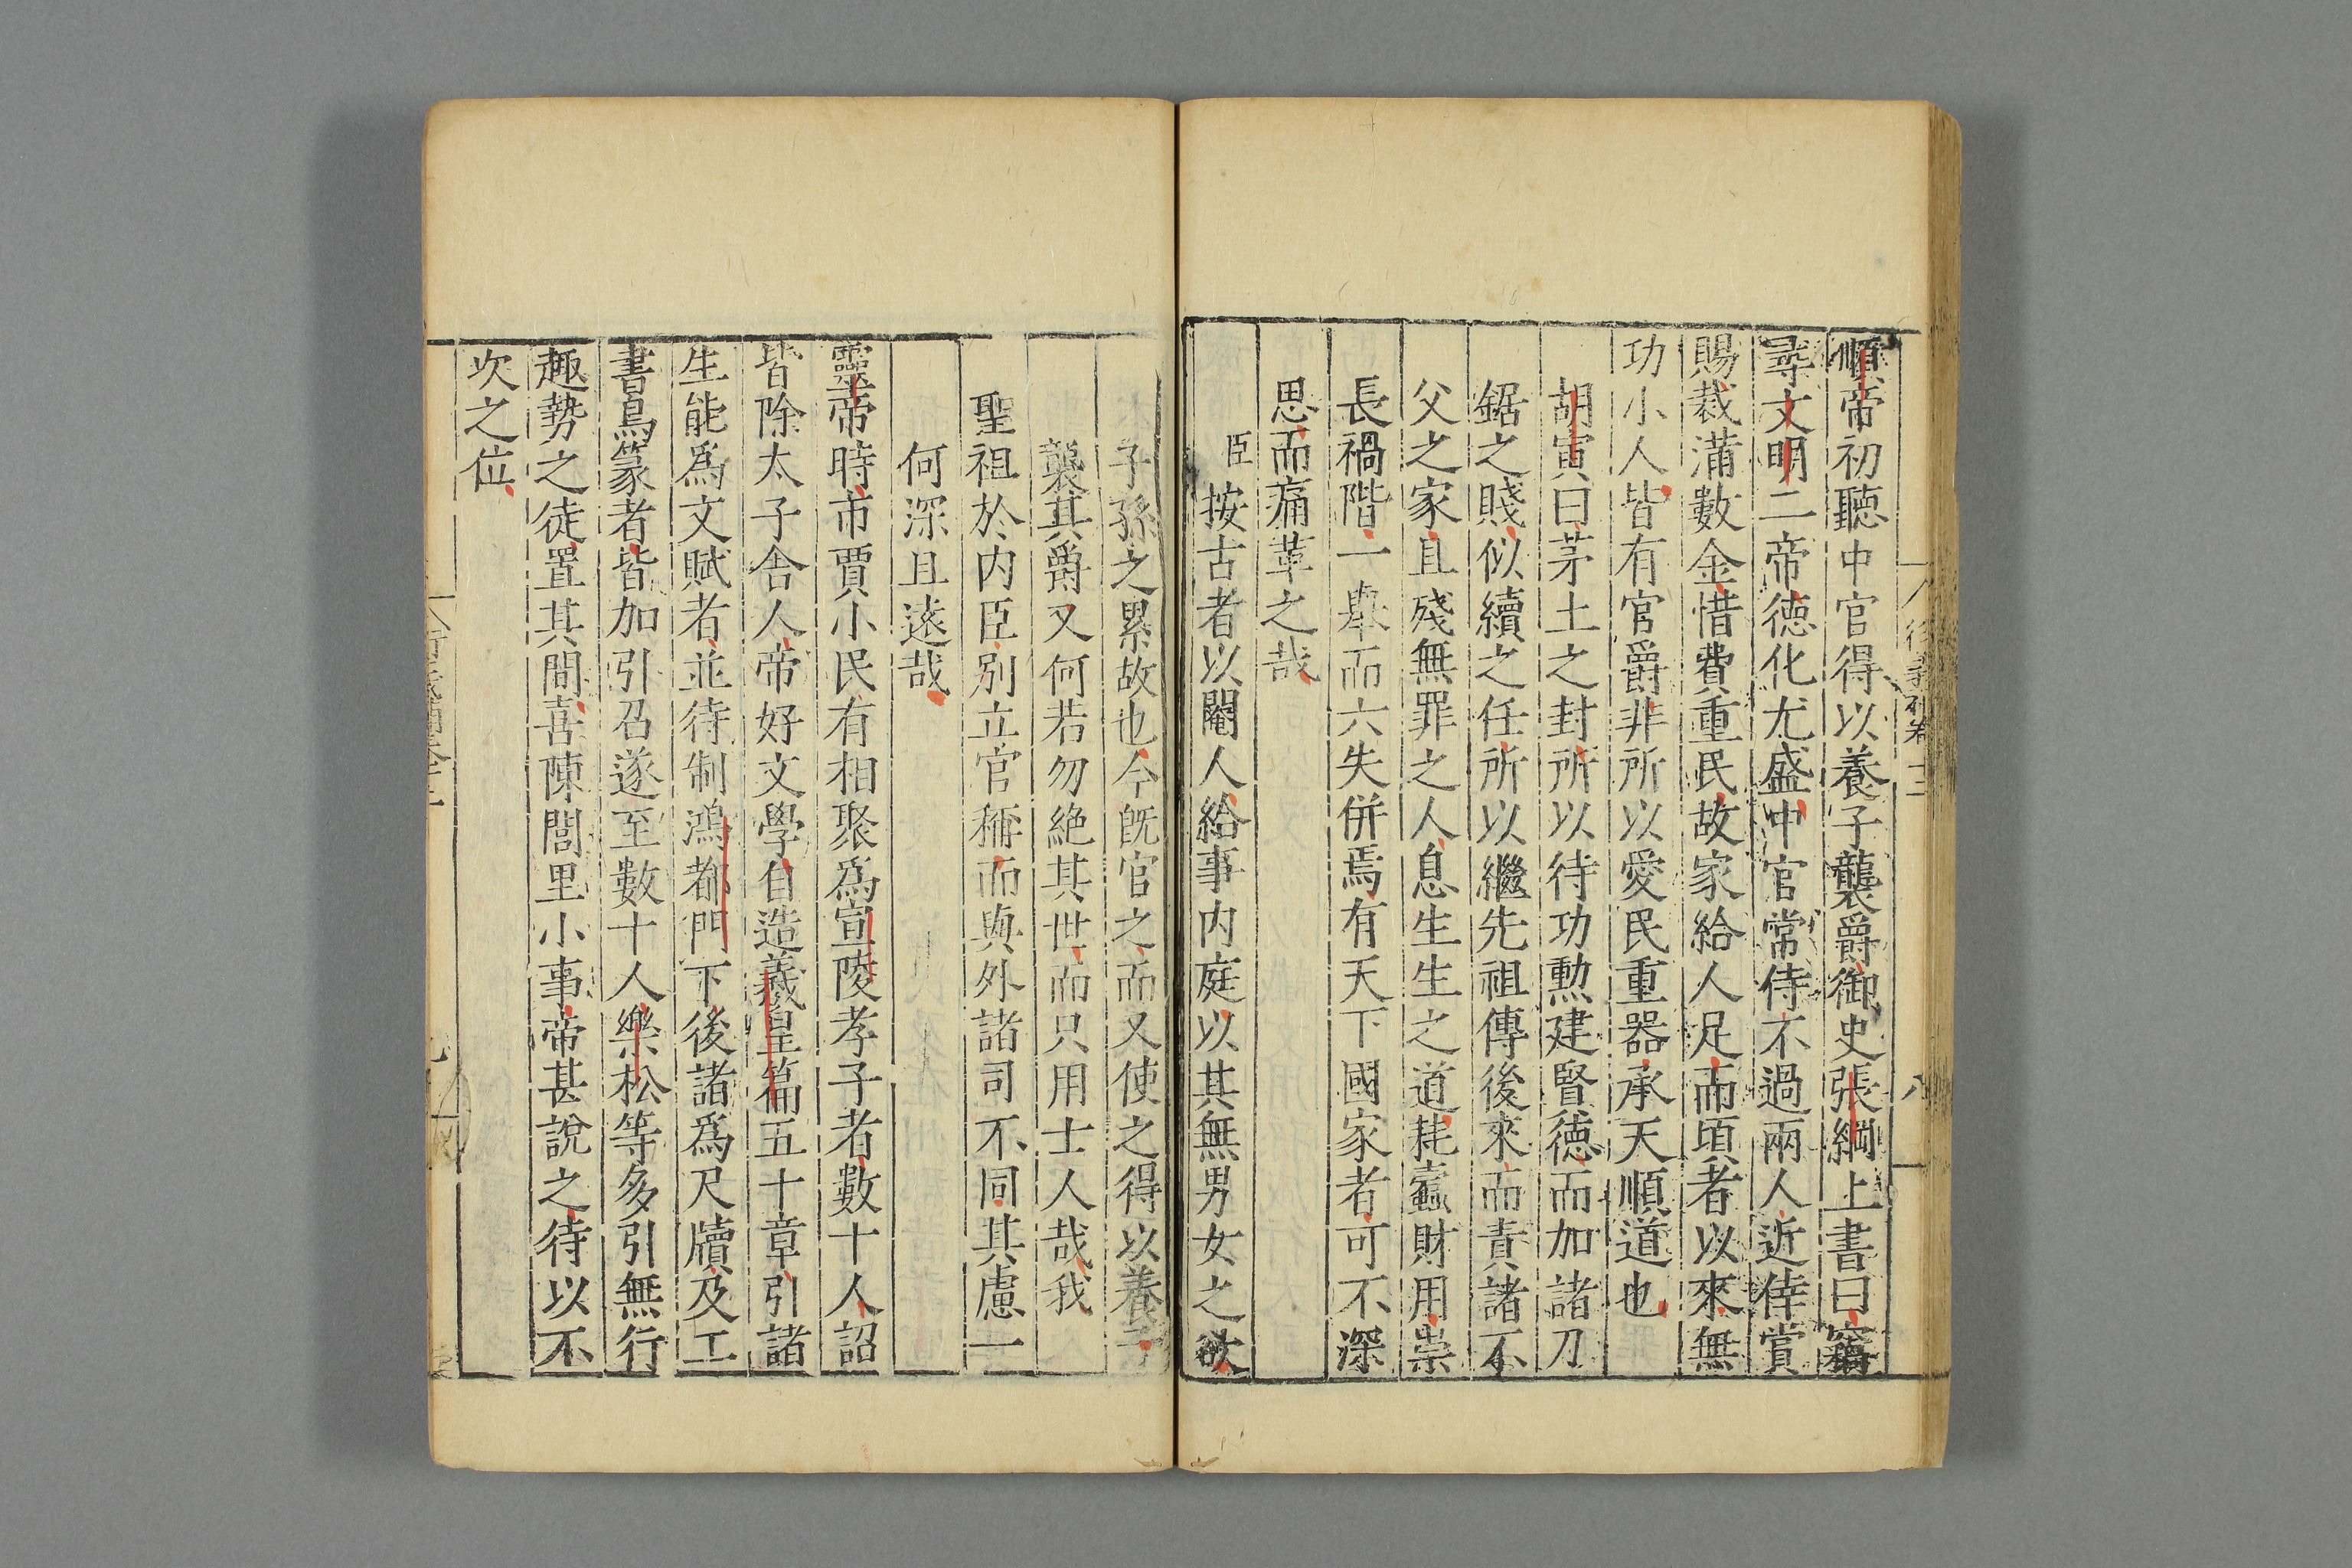 順帝初聽中官得以養子襲爵御史張綱上書曰竊
尋文明二帝德化尤盛中官常侍不過兩人近倖賞
賜裁滿數金惜費重民故家給人足而頃者以來無
功小人皆有官爵非所以愛民重器承天順道也
胡寅曰茅土之封所以待功勲建賢德而加諸刀
鋸之賤似續之任所以繼先祖傳後來而責諸不
父之家且殘無罪之人息生生之道耗蠹財用崇
長禍階一舉而六失併焉有天下國家者可不深
思而痛革之哉
臣按古者以閹人給事内庭以其無男女之欲
子孫之累故也今既官之而又使之得以養子
襲其爵又何若勿絶其世而只用士人哉我
聖祖於内臣别立官稱而與外諸司不同其慮一
何深且遠哉
靈帝時市賈小民有相聚爲宣陵孝子者數十人詔
皆除太子舎人帝好文學自造羲皇篇五十章引諸
生能爲文賦者並待制鴻都門下後諸爲尺牘及工
書鳥篆者皆加引召遂至數十人樂松等多引無行
趣勢之徒置其間喜陳閭里小事帝甚說之待以不
次之位